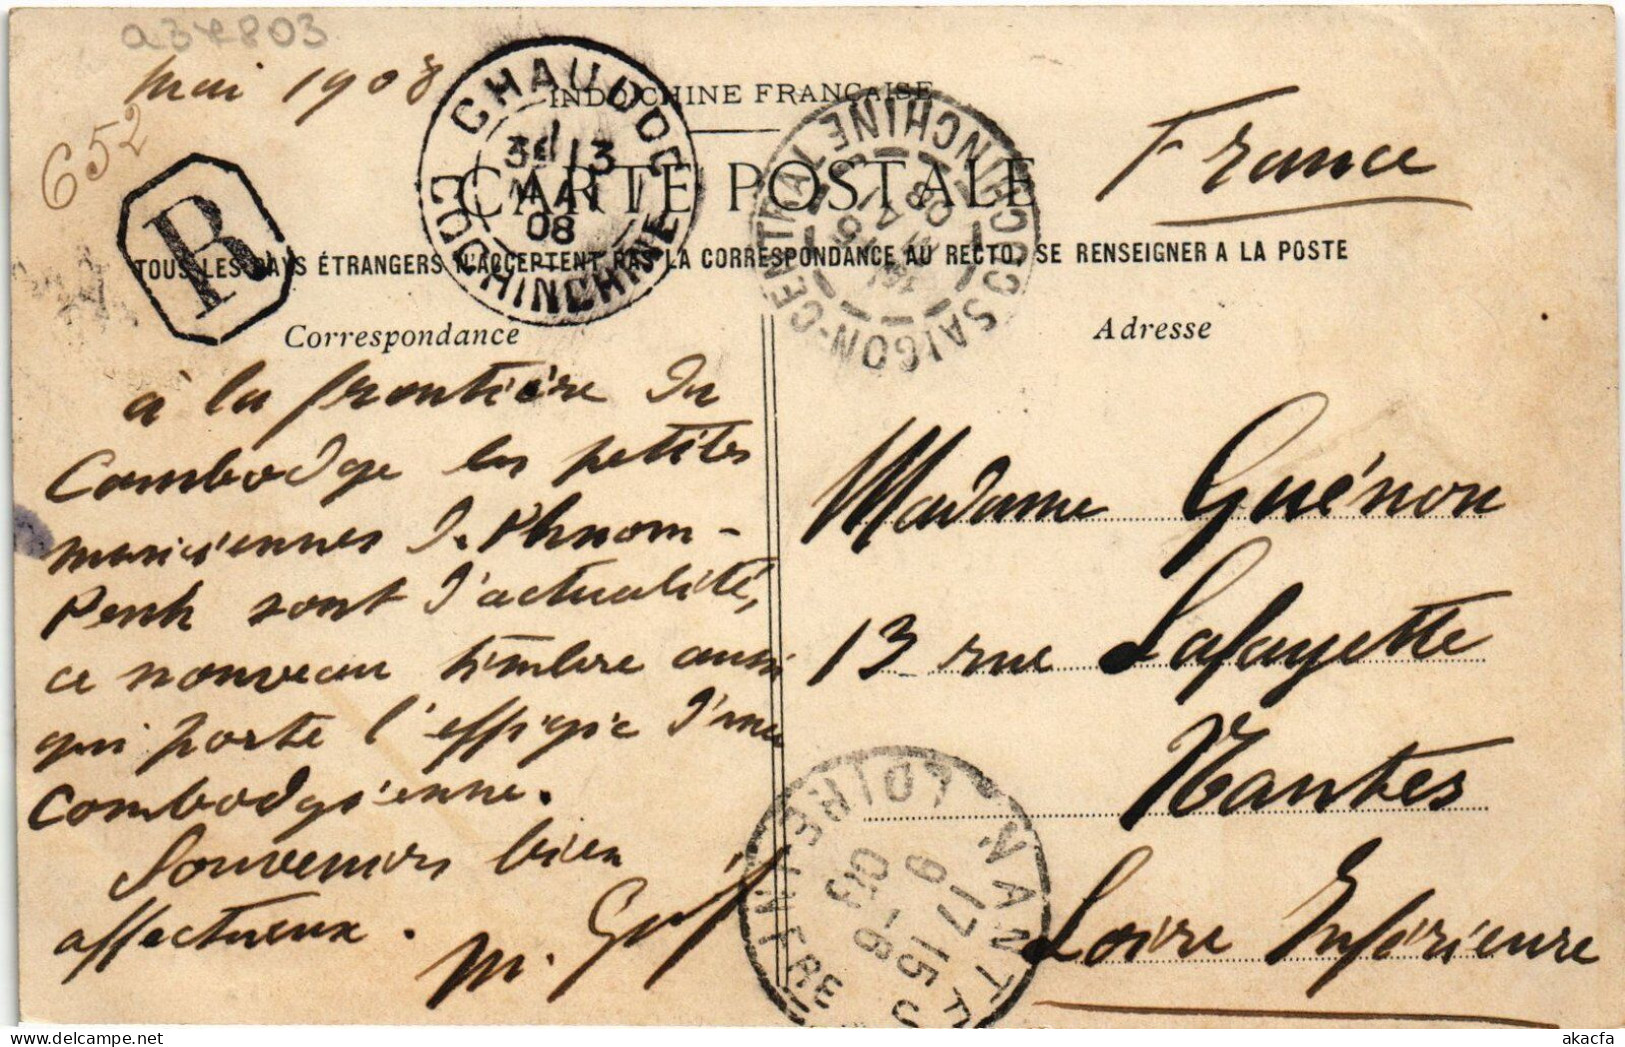 a37803
mai 1908
652
INDO-CHINE FRANÇAISE
CARTE POSTALE
TOUS LES PAYS ÉTRANGERS N'ACCEPTENT PAS LA CORRESPONDANCE AU RECTO. SE RENSEIGNER A LA POSTE
R
CHAUDOC
13
MAI
08
COCHINCHINE
SAIGON-CENTRAL COCHINCHINE
08
France
Correspondance
Adresse
à la frontière du
Cambodge les petites
d. Phnom-
Penh sont d'actualité,
ce nouveau timbre aussi
qui porte l'effigie d'une
Combodgienne.
Souvenirs bien
affectueux.
Madame Guénon
13 rue Lafayette
Nantes
Loire Inférieure
NANTES
LOIRE INFRE
17 15
9 - 6
08
akacfa